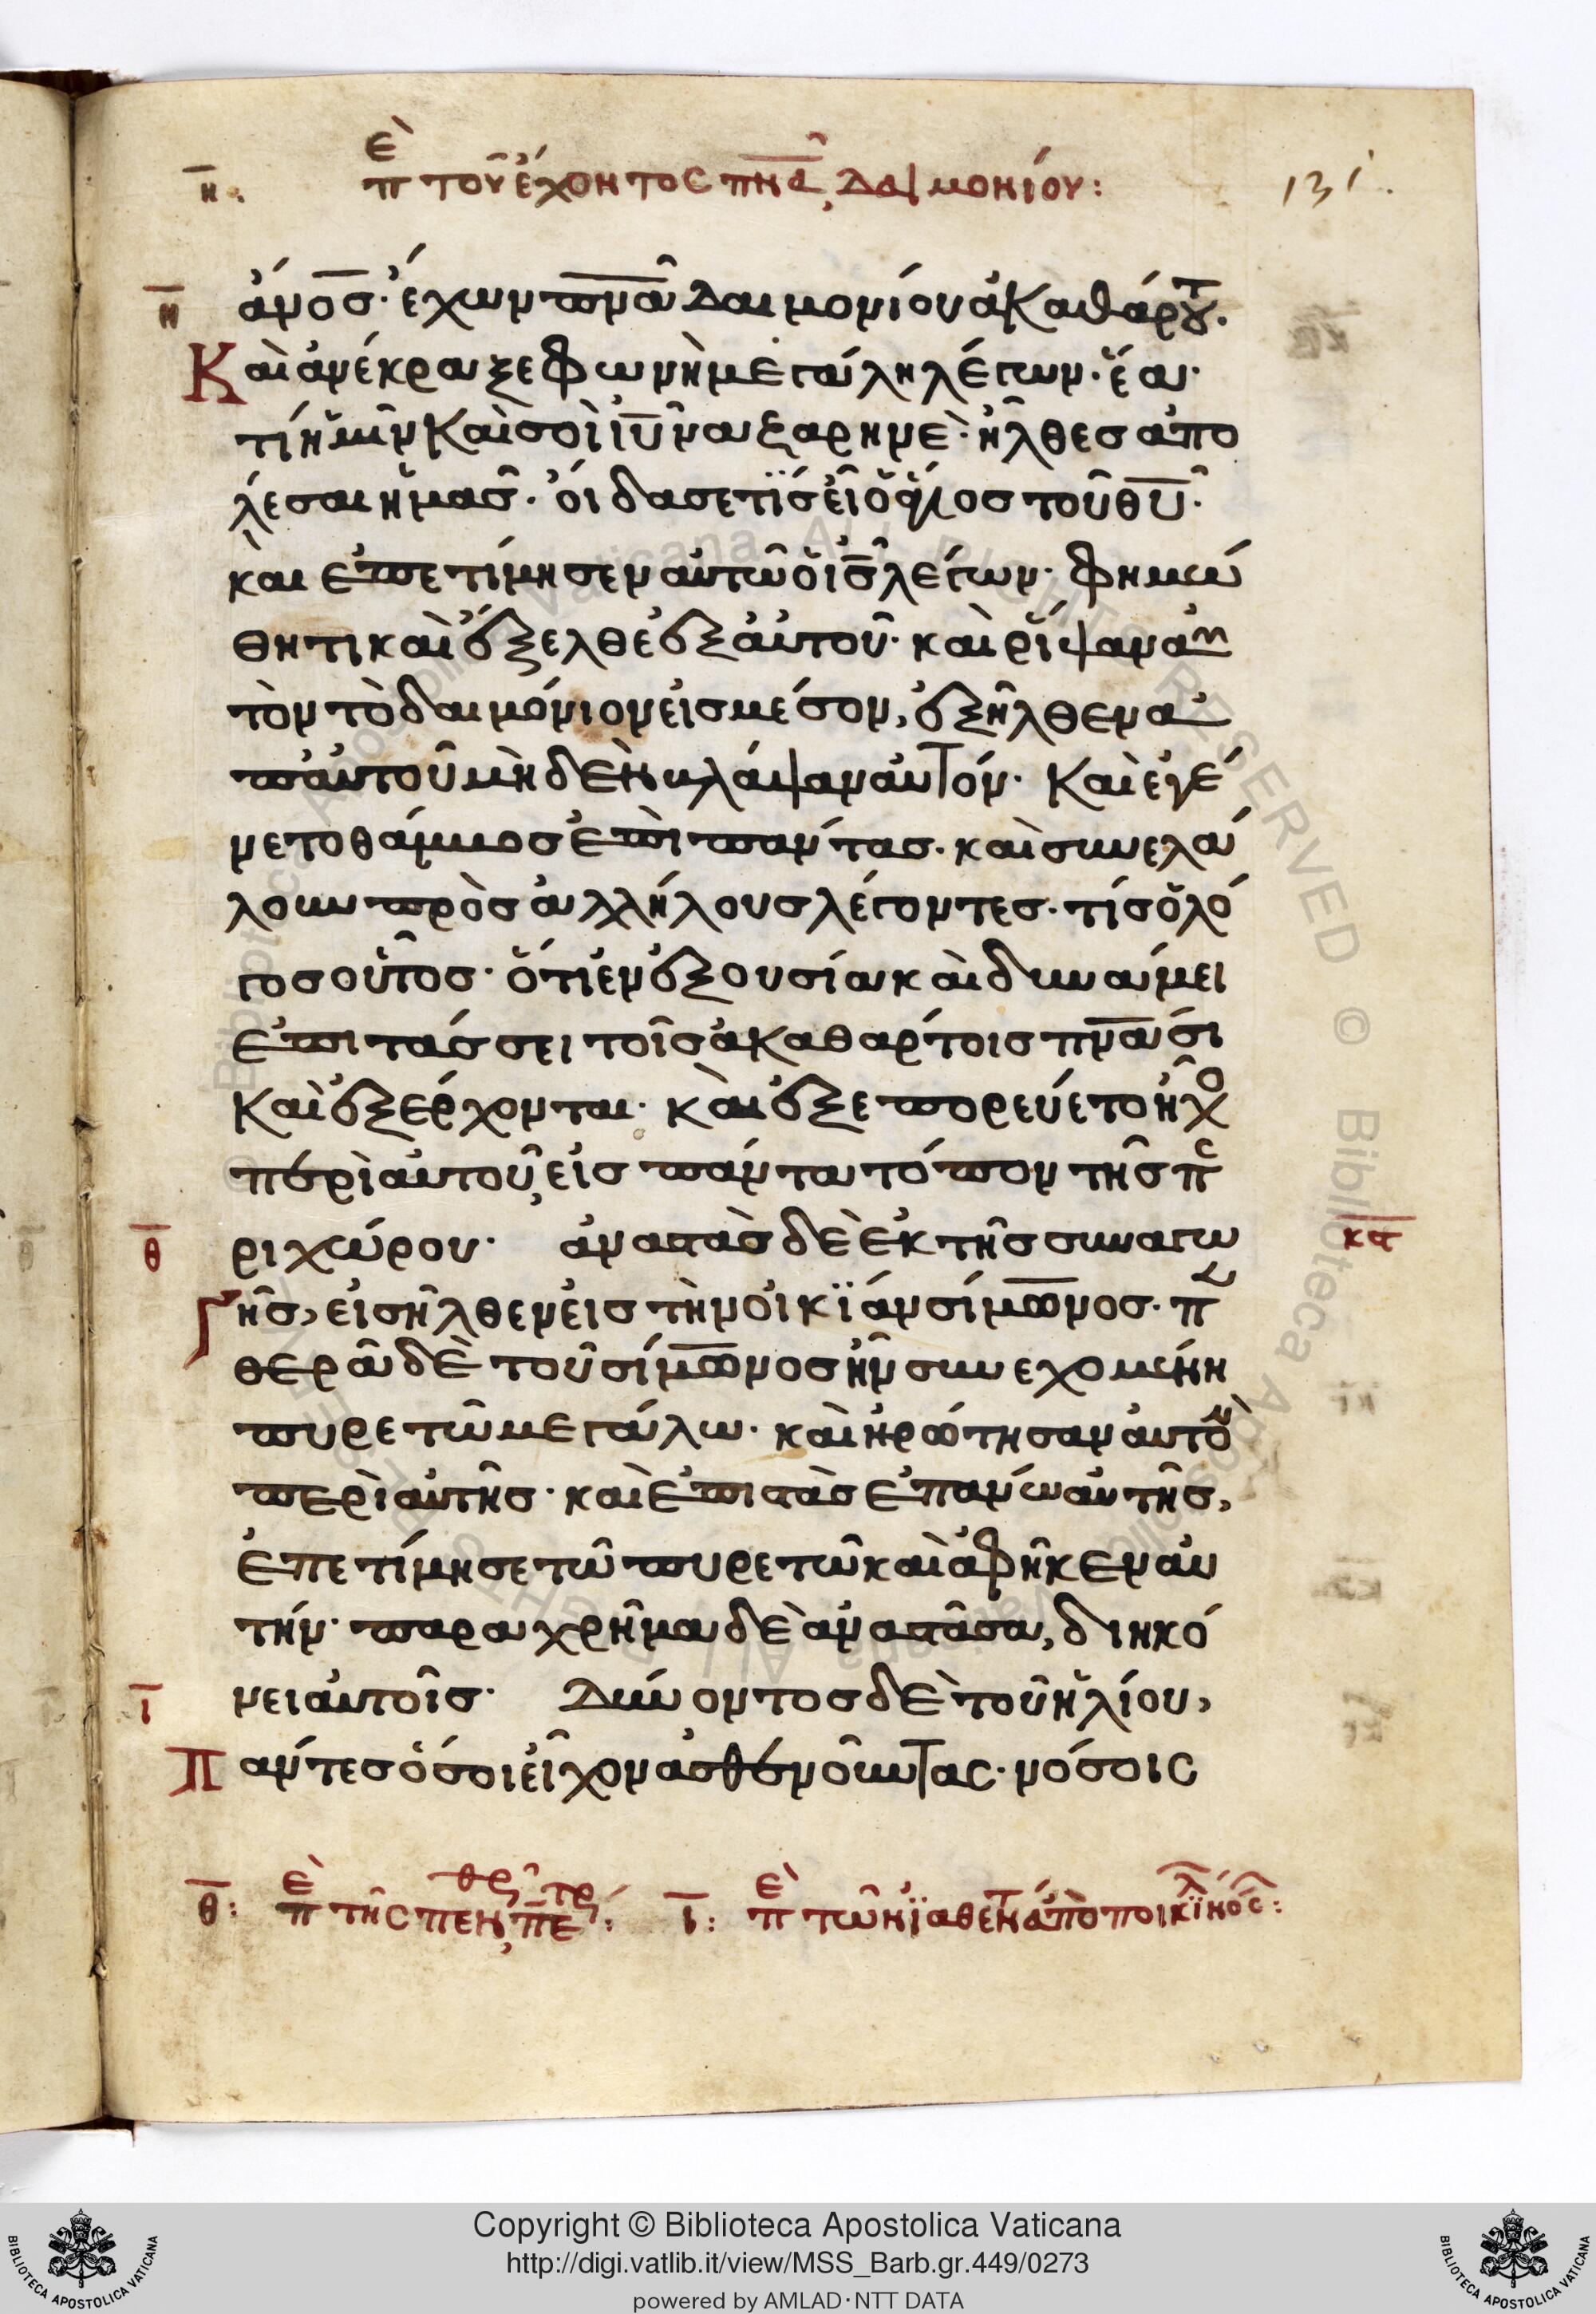 η: ἐπὶ τοῦ ἔχοντος πνᾶ, δαιμονίου: 131.
η ἄνος· ἔχων πνᾶ δαιμονίου ἀκαθάρτου.
Καὶ ἀνέκραξε φωνῆ μεγάλη λέγων· ἔα·
τί ἡμῖν καὶ σοὶ ιῦ ναζαρηνέ· ἦλθες ἀπο
λέσαι ἡμᾶς· οἶδα σε τίς εἶ ὁ ἅγιος τοῦ θῦ·
καὶ ἐπετίμησεν αὐτῶ ὁ ις λέγων· φημώ
θητι καὶ ἔξελθε ἐξ αὐτοῦ· καὶ ῥίψαν αὐ
τὸν τὸ δαιμόνιον εἰς μέσον, ἐξῆλθεν ἀ
π' αὐτοῦ μὴδὲν βλάψαν αὐτόν· Καὶ ἐγέ
νετο θάμβος ἐπὶ πάντας· καὶ συνελά
λουν πρὸς ἀλλήλους λέγοντες· τίς ὁ λό
γος οὗτος· ὅτι ἐν ἐξουσία καὶ δυνάμει
ἐπιτάσσει τοῖς ἀκαθάρτοις πνάσι
Καὶ ἐξέρχονται· καὶ ἐξεπορεύετο ἦχο
περὶ αὐτοῦ, εἰς πάντα τόπον τῆς πε
θ ριχώρου· ἀναστὰς δὲ ἐκ τῆς συναγω κα
Γῆς, εἰσῆλθεν εἰς τὴν οἰκίαν σίμωνος· πεν
θερὰ δὲ τοῦ σίμωνος ἦν συνεχομένη
πυρετῶ μεγάλω· καὶ ἠρώτησαν αὐτὸν
περὶ αὐτῆς· καὶ ἐπιστὰς ἐπάνω αὐτῆς,
ἐπετίμησε τῶ πυρετῶ καὶ ἀφῆκεν αὐ
τήν· παραχρῆμα δὲ ἀναστᾶσα, διηκό
ι νει αὐτοῖς· Δύνοντος δὲ τοῦ ἡλίου,
Πάντες ὅσοι εἶχον ἀσθενοῦντας· νόσοις
θ: ἐπὶ τῆς πενθερ, πετρ: ι: ἐπὶ τῶν ἰαθέντ ἀπὸ ποικίλ νόσ:
Copyright © Biblioteca Apostolica Vaticana
http://digi.vatlib.it/view/MSS_Barb.gr.449/0273
powered by AMLAD·NTT DATA